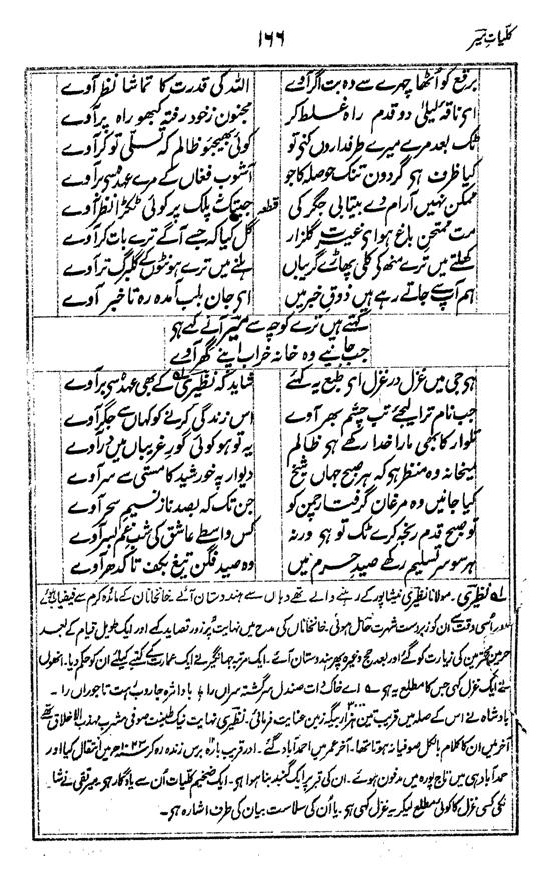 کلیاتِ میر
۱۶۶
برقع کو اُٹھا چہرے سے وہ بت اگر آوے
اللہ کی قدرت کا تماشا نظر آوے
ای ناقۂ لیلیٰ دو قدم راہ غلط کر
مجنون زخود رفتہ کبھو راہ پر آوے
ٹک بعد مرے میرے طرفداروں کنی تو
کوئی بھیجیو ظالم کہ تسلی تو کر آوے
کیا ظرف ہی گردون تنک حوصلہ کا جو
آشوب فغاں کے مرے عہدے سے بر آوے
ممکن نہیں آرام دے بیتابی جگر کی
جب تک نہ پلک پر کوئی ٹکڑا نظر آوے
قطعہ
مت ممتحن باغ ہو ای غیرت گلزار
گل کیا کہ جسے آگے ترے بات کر آوے
کھلتے میں ترے منھ کی کلی پھاڑے گریباں
ہلنے میں ترے ہونٹوں کے گلبرگ تر آوے
ہم آپ سے جاتے رہے ہیں ذوقِ خبر میں
ای جان بلب آمدہ رہ تا خبر آوے
کہتے ہیں ترے کوچہ سے میر آنے کہے ہی
جب جانیے وہ خانہ خراب اپنے گھر آوے
ہی جی میں غزل در غزل ای طبع یہ کہیے
شاید کہ نظیری کے بھی عہدے سے بر آوے
جب نام ترا لیجئے تب چشم بھر آوے
اس زندگی کرنے کو کہاں سے جگر آوے
تلوار کا بھی مارا خدا رکھے ہی ظالم
یہ تو ہو کوئی گورِ غریباں میں در آوے
میخانہ وہ منظر ہی کہ ہر صبح جہاں شیخ
دیوار پہ خورشید کا مستی سے سر آوے
کیا جانیں وہ مرغان گرفتار چمن کو
جن تک کہ بصد ناز نسیم سحر آوے
تو صبح قدم رنجہ کرے ٹک تو ہی ورنہ
کس واسطے عاشق کی شبِ غم بسر آوے
ہر سو سر تسلیم رکھے صید حرم میں
وہ صید فگن تیغ بکف تا کدھر آوے
لہ نظیری۔ مولانا نظیری نیشاپور کے رہنے والے تھے وہاں سے ہندوستان آئے خانخاناں کے مائدہ کرم سے فیضیاب ہوئے
اور اُسی وقت سے ان کو زبردست شہرت حاصل ہوئی۔ خانخاناں کی مدح میں نہایت پُر زور قصاید کہے اور ایک طویل قیام کے بعد
حرمین محترمین کی زیارت کو گئے اور بعد حج وغیرہ پھر ہندوستان آئے۔ ایک مرتبہ جہانگیر نے ایک عمارت کے کتبے کیلئے ان کو حکم دیا۔ انھوں
نے ایک غزل کہی جس کا مطلع یہ ہی ؎ اے خاک درت صندل سرگشتہ سراں را ؛ بادا مژہ جاروب رہت تاجوراں را۔
بادشاہ نے اس کے صلہ میں قریب تین ہزار بیگہ زمین عنایت فرمائی۔ نظیری نہایت نیک طینت صوفی مشرب مہذب الاخلاق تھے
آخر میں ان کا کلام بالکل صوفیانہ ہوتا تھا۔ آخر عمر میں احمد آباد گئے۔ اور قریب بارہ برس زندہ رہ کر ۱۰۲۳ھ میں انتقال کیا اور
احمد آباد ہی میں تاج پورہ میں مدفون ہوئے۔ ان کی قبر پر ایک گنبد بنا ہوا ہی۔ ایک ضخیم کلیات اُن سے یادگار ہو۔ میر تقی نے شاید
انکی کسی غزل کا کوئی مطلع لیکر یہ غزل کہی ہو۔ یا اُن کی سلاست بیان کی طرف اشارہ ہو۔